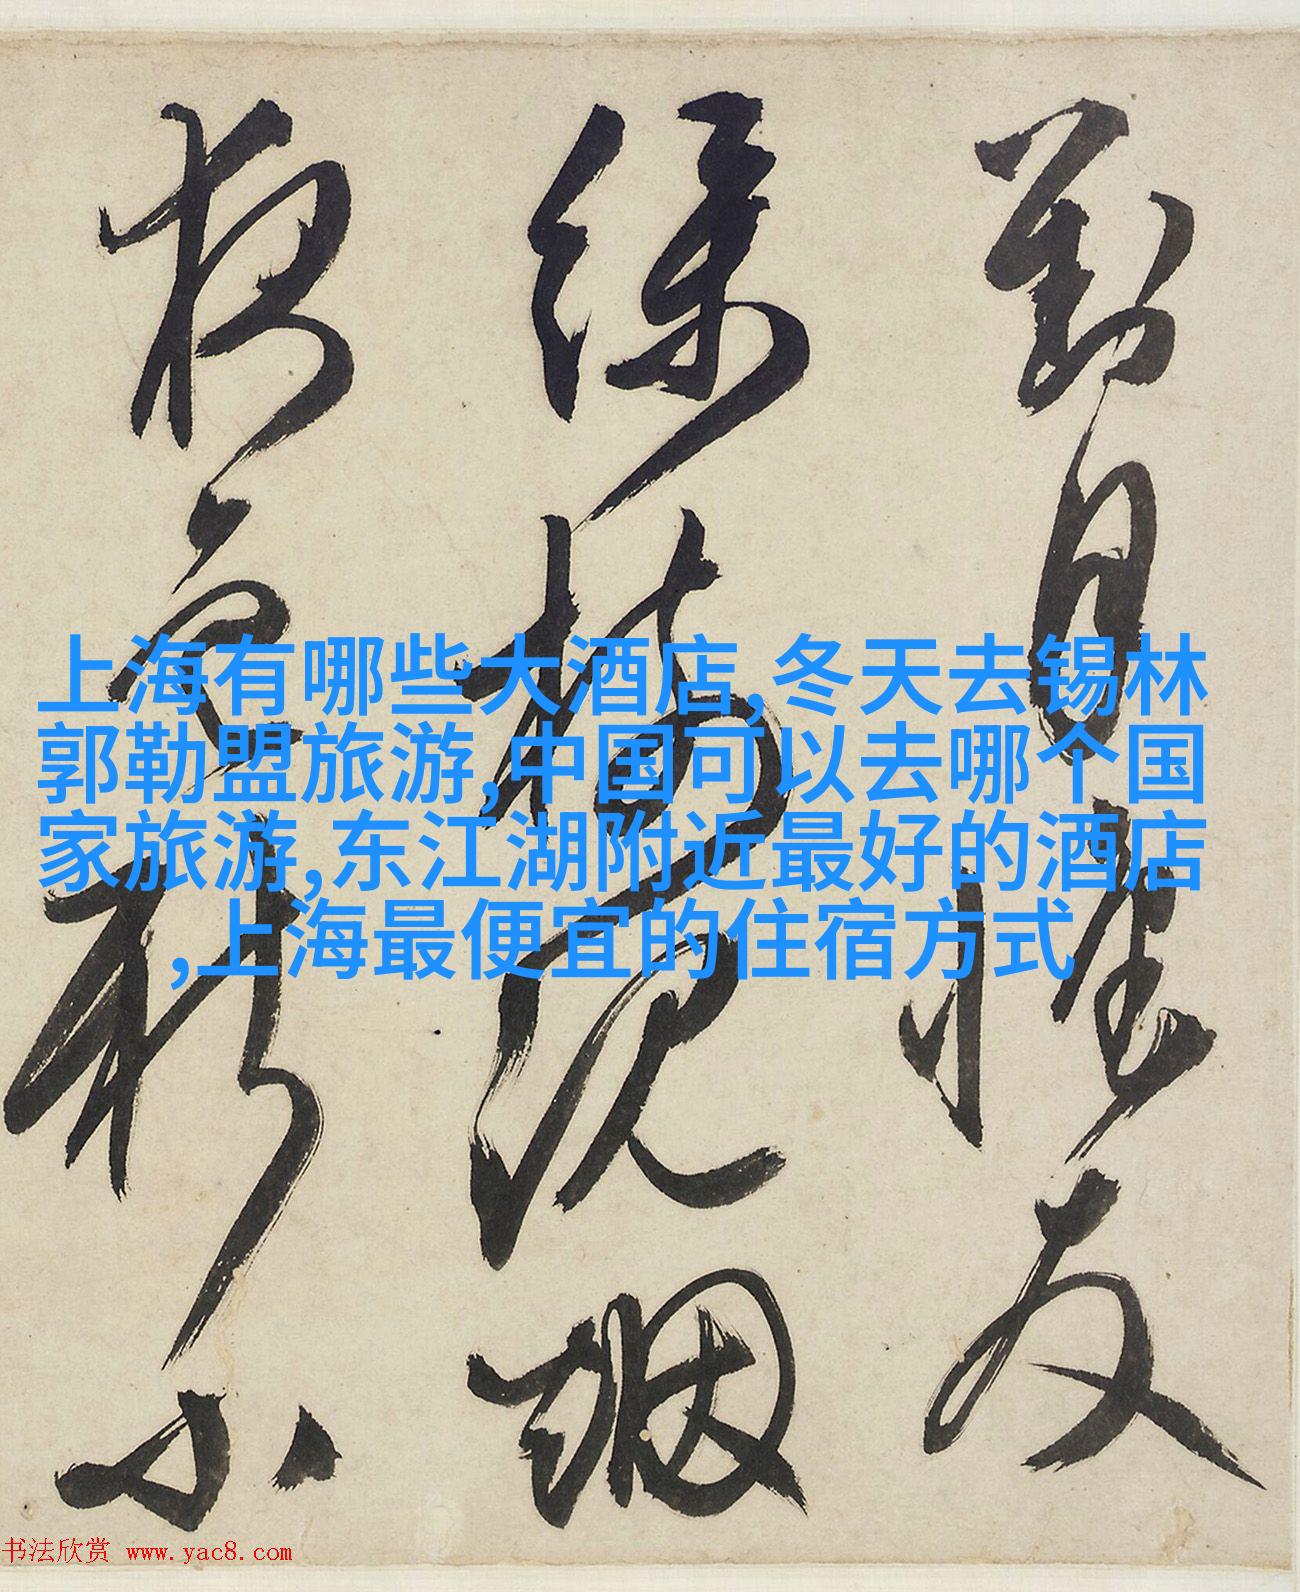 對月懷友
綠 烟
夜
上海有哪些大酒店,冬天去锡林
郭勒盟旅游,中国可以去哪个国
家旅游,东江湖附近最好的酒店
,上海最便宜的住宿方式
书法欣赏 www.yac8.com